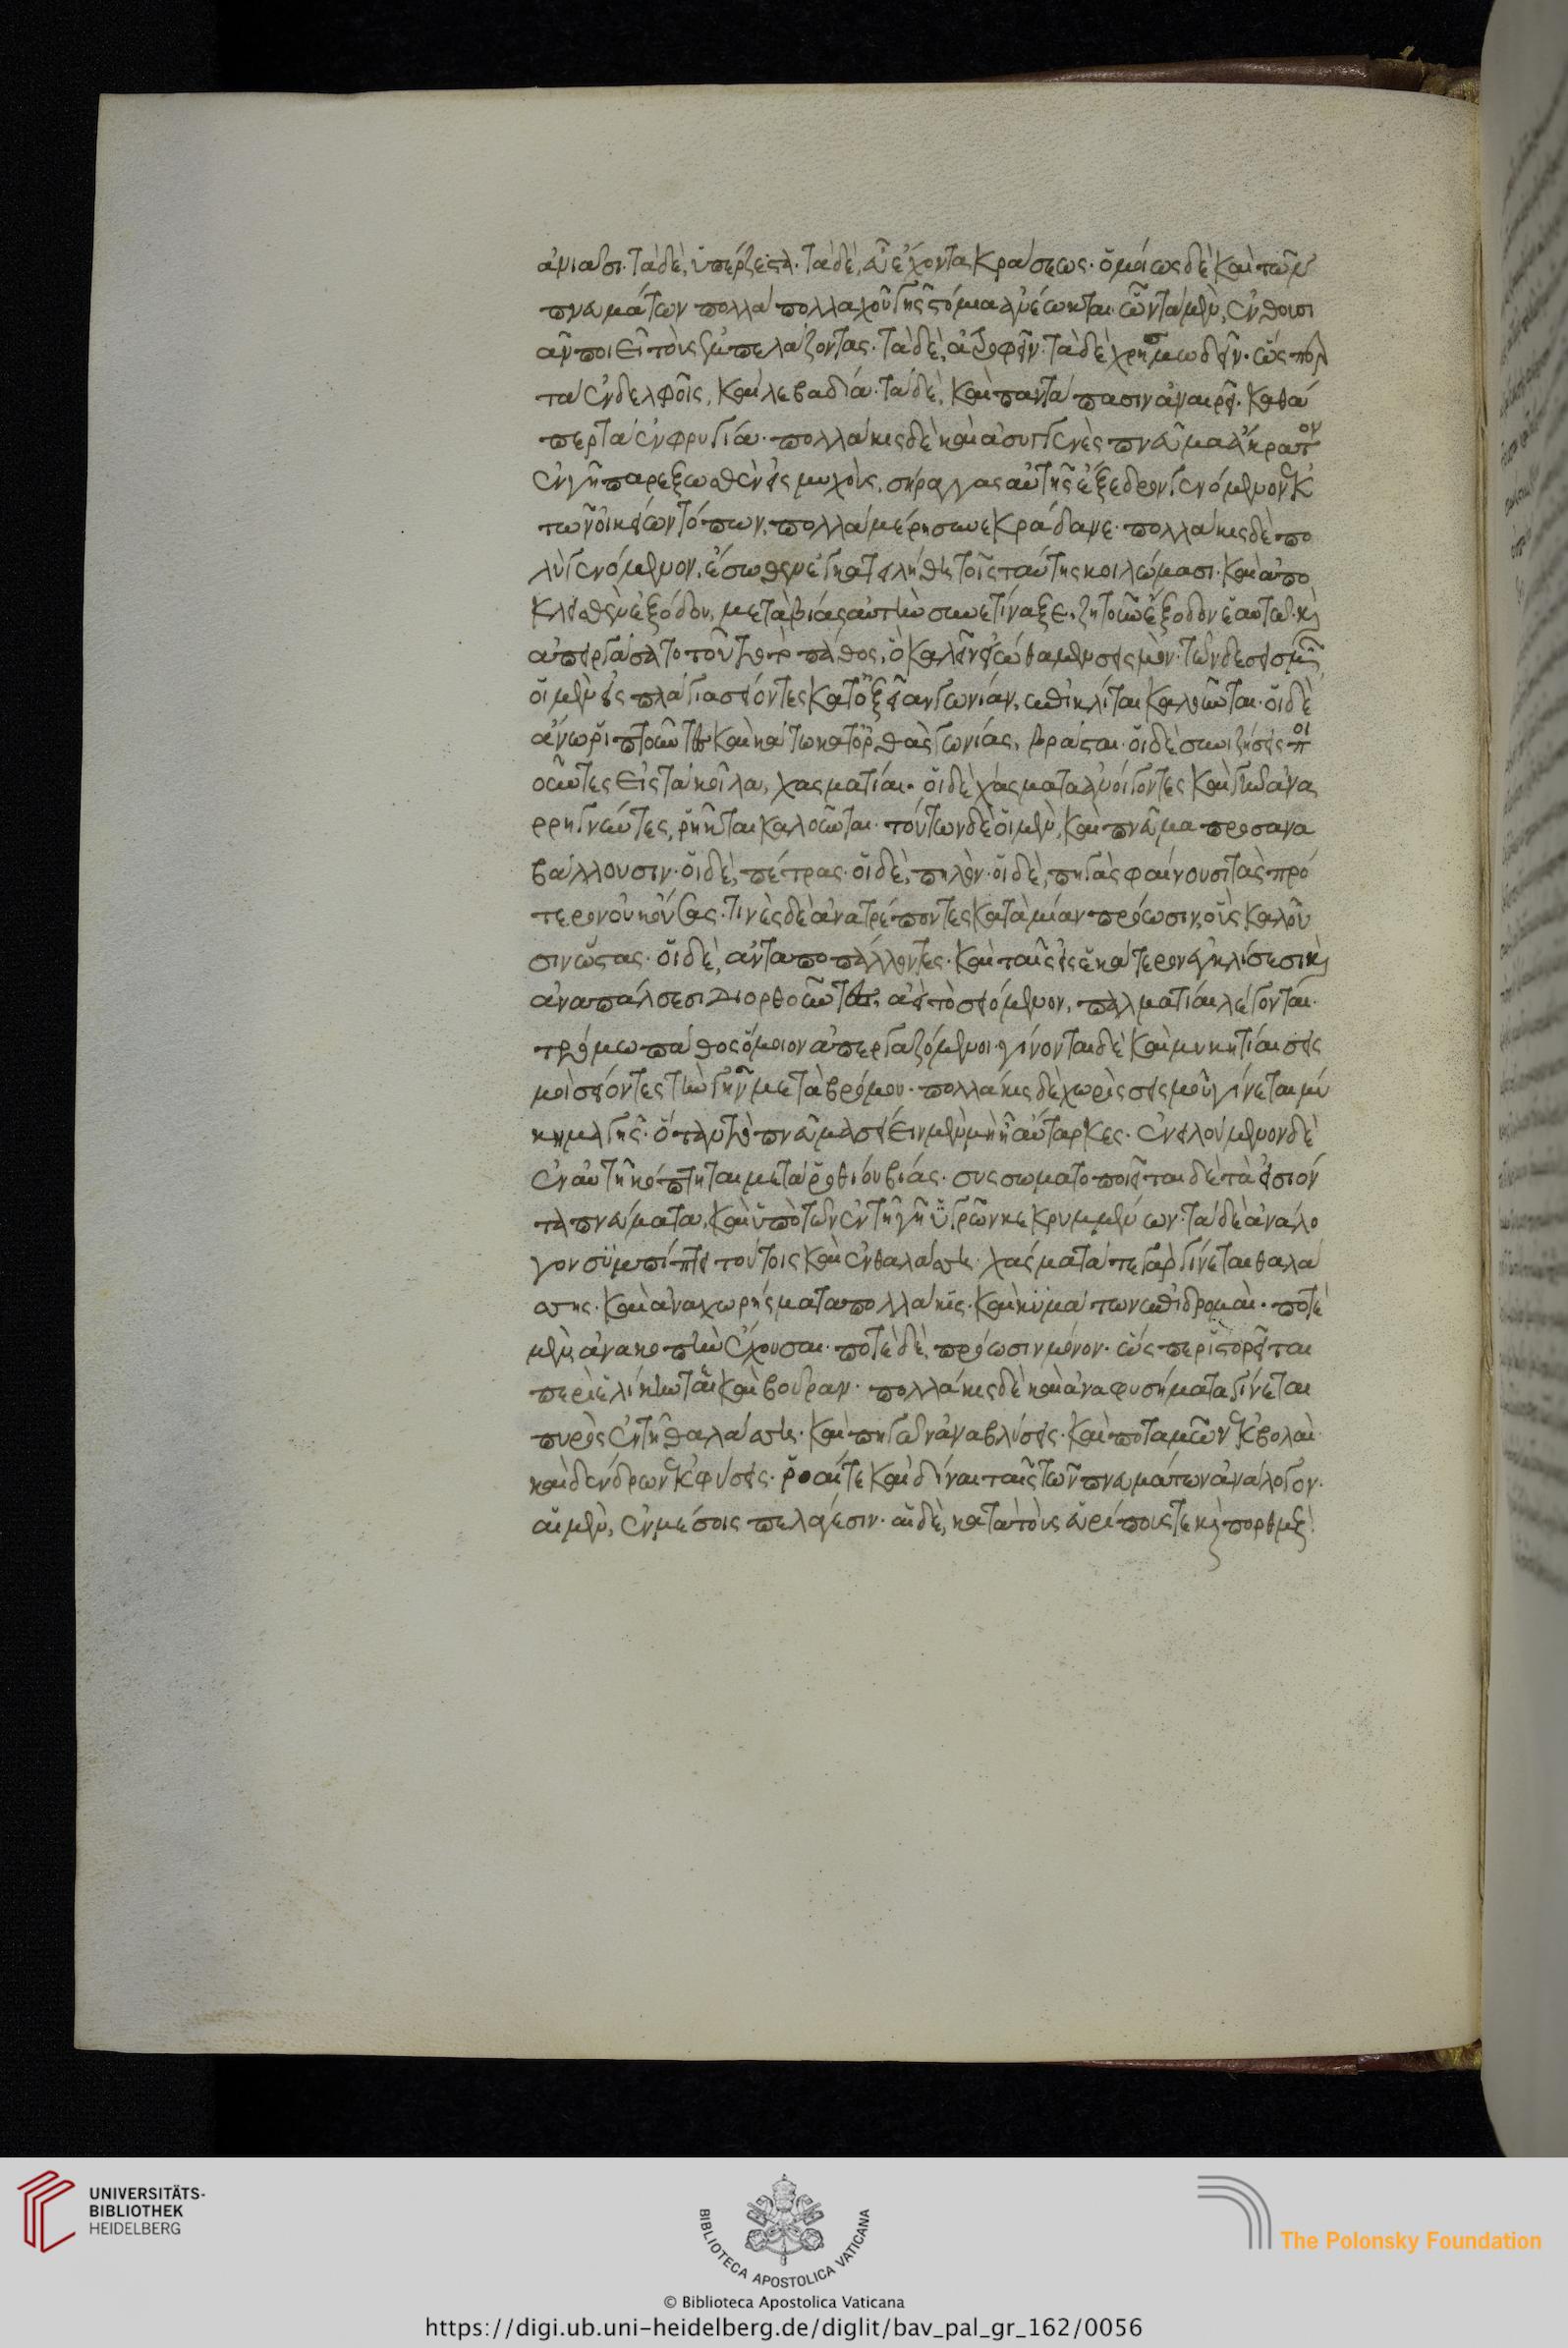 ἀνιᾶσι· τὰ δὲ, ὑπέρζεστα· τὰ δὲ, εὖ ἔχοντα κράσεως· ὁμοίως δὲ καὶ τῶν
πνευμάτων πολλὰ πολλαχοῦ γῆς στόμια ἀνέωκται· ὧν τὰ μὲν, ἐνθουσι
ᾶν ποιεῖ τοὺς ἐμπελάζοντας· τὰ δὲ, ἀτροφεῖν· τὰ δὲ χρησμωδεῖν· ὥσπερ
τὰ ἐν δελφοῖς, καὶ λεβαδία· τὰ δὲ, καὶ παντάπασιν ἀναιρεῖ· καθά
περ τὰ ἐν φρυγία· πολλάκις δὲ καὶ ἀσυγγενὲς πνεῦμα εὔκρατον
ἐν γῇ παρεξωσθὲν εἰς μυχοὺς, σήραγγας αὐτῆς ἔξεδρον γενόμενον ἐκ
τῶν οἰκείων τόπων, πολλὰ μέρη συνεκράδανε· πολλάκις δὲ πο
λὺ γενόμενον, ἔσωθεν ἐγκατειλήθη τοῖς ταύτης κοιλώμασι· καὶ ἀπο
κλεισθὲν ἐξόδου, μετὰ βίας αὐτὴν συνετίναξε, ζητοῦν ἔξοδον ἑαυτῶ· καὶ
ἀπειργάσατο τοῦτο τὸ πάθος, ὃ καλεῖν εἰώθαμεν σεισμόν· τῶν δὲ σεισμῶν
οἱ μὲν εἰς πλάγια σείοντες κατ' ὀξείαν γωνίαν, ἐπικλίται καλοῦνται· οἱ δὲ
ἄνω ῥιπτοῦντες καὶ κάτω κατ' ὀρθὰς γωνίας, βράσται· οἱ δὲ συνιζήσεις ποι
οῦντες εἰς τὰ κοῖλα, χασματίαι· οἱ δὲ χάσματα ἀνοίγοντες καὶ γῆν ἀνα
ρρηγνύντες, ῥῆκται καλοῦνται· τούτων δὲ οἱ μὲν, καὶ πνεῦμα προσανα
βάλλουσιν· οἱ δὲ, πέτρας· οἱ δὲ, πηλόν· οἱ δὲ, πηγὰς φαίνουσι τὰς πρό
τερον οὐκ οὔσας· τινὲς δὲ ἀνατρέποντες κατὰ μίαν πρόωσιν, οὓς καλοῦ
σιν ὤστας· οἱ δὲ, ἀνταποπάλλοντες· καὶ ταῖς εἰς ἑκάτερον ἐγκλίσεσι καὶ
ἀναπάλσεσι διορθοῦντες ἀεὶ τὸ σειόμενον, παλματίαι λέγονται·
τρόμω πάθος ὅμοιον ἀπεργαζόμενοι· γίνονται δὲ καὶ μυκητίαι σεις
μοὶ σείοντες τὴν γῆν μετὰ βρόμου· πολλάκις δὲ χωρὶς σεισμοῦ γίνεται μύ
κημα γῆς· ὅταν τὸ πνεῦμα σείειν μὲν μὴ ᾖ αὔταρκες· ἐνειλούμενον δὲ
ἐν αὐτῆ κόπτηται μετὰ ῥοθίου βίας· συσσωματοποιεῖται δὲ τὰ εἰσιόν
τα πνεύματα, καὶ ὑπὸ τῶν ἐν τῆ γῆ ὑγρῶν κεκρυμμένων· τὰ δὲ ἀνάλο
γον συμπίπτει τούτοις καὶ ἐν θαλάσση· χάσματά τε γὰρ γίνεται θαλά
σσης· καὶ ἀναχωρήσματα πολλάκις· καὶ κυμάτων ἐπιδρομαὶ· ποτὲ
μὲν ἀνακοπὴν ἔχουσαι· ποτὲ δὲ, πρόωσιν μόνον· ὥσπερ ἱστορεῖται
περὶ ἑλίκην τὲ καὶ βούραν· πολλάκις δὲ καὶ ἀναφυσήματα γίνεται
πυρὸς ἐν τῆ θαλάσση· καὶ πηγῶν ἀναβλύσεις· καὶ ποταμῶν ἐκβολαὶ·
καὶ δένδρων ἐκφύσεις· ῥοαί τε καὶ δίναι ταῖς τῶν πνευμάτων ἀνάλογον·
αἱ μὲν, ἐν μέσοις πελάγεσιν· αἱ δὲ, κατὰ τοὺς εὐρίπους τε καὶ πορθμούς·
UNIVERSITÄTS-
BIBLIOTHEK
HEIDELBERG
BIBLIOTECA APOSTOLICA VATICANA
© Biblioteca Apostolica Vaticana
The Polonsky Foundation
https://digi.ub.uni-heidelberg.de/diglit/bav_pal_gr_162/0056